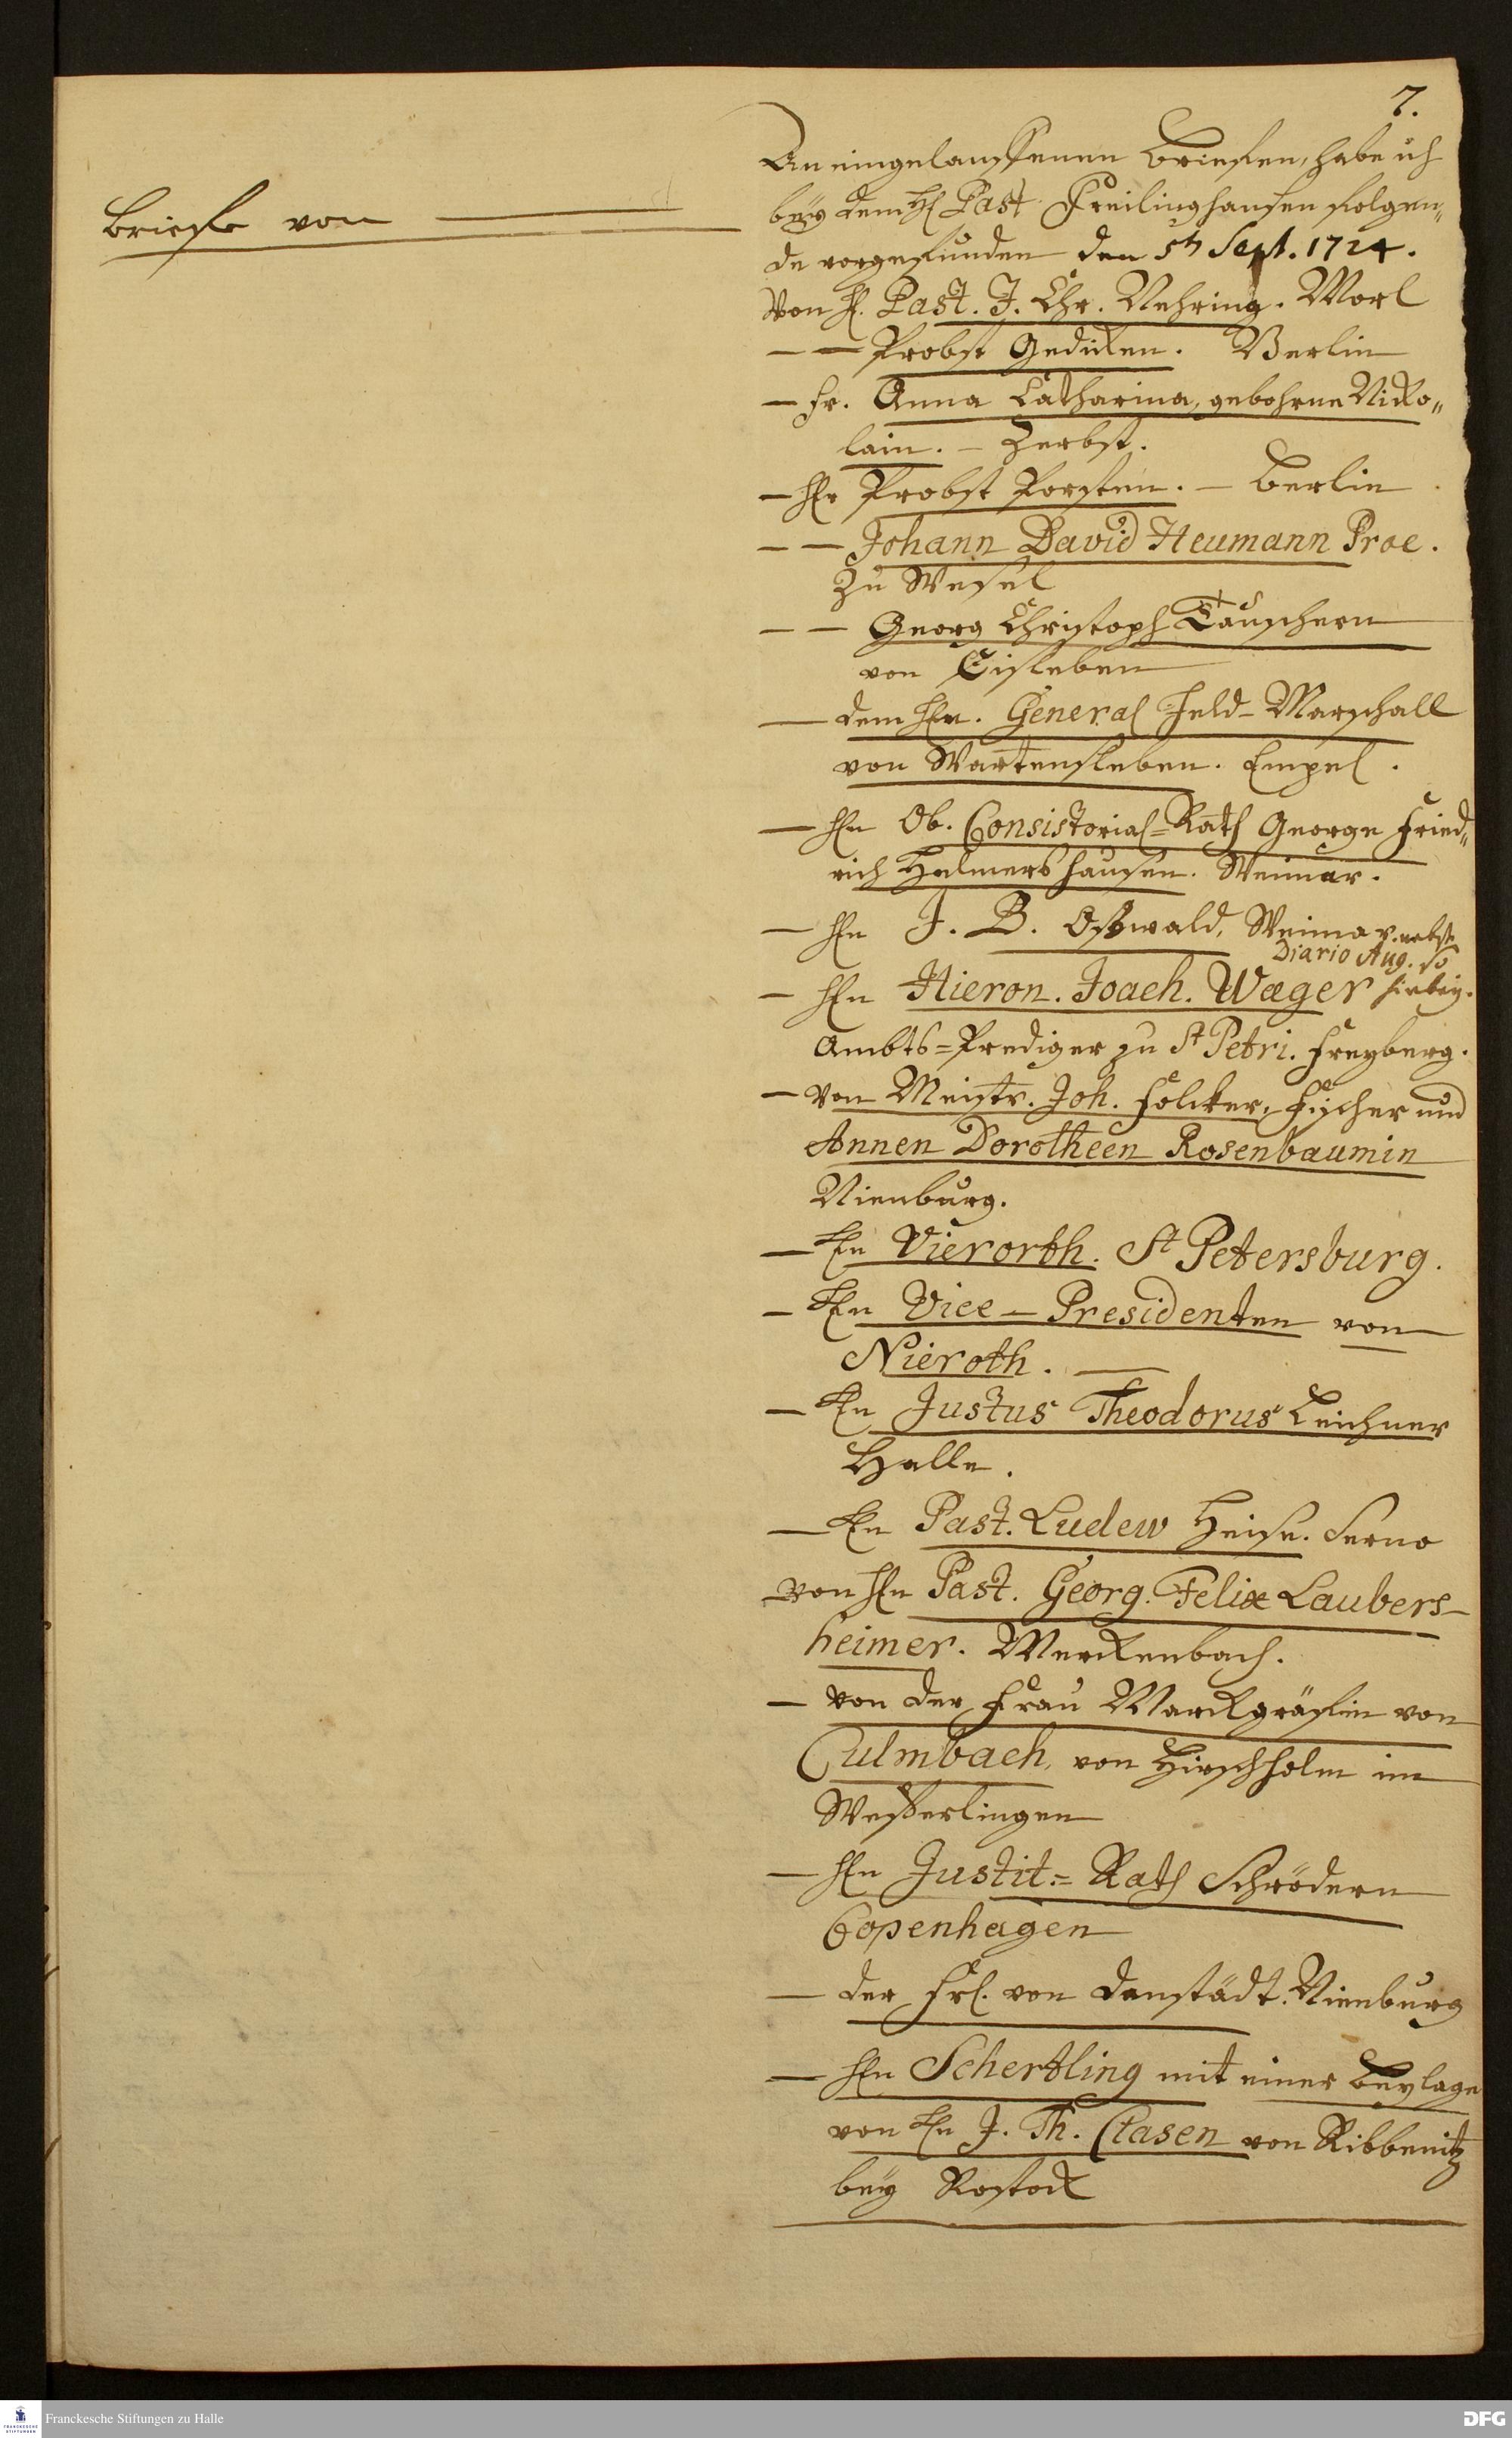 7.
Briefe von
An eingelauffenen Briefen, habe ich
bey dem H. Past. Freilinghausen folgen„
de vorgefunden den 5t Sept. 1724.
Von H. Past. J. Chr. Nehring. Morl
— — Probst Gedicken. Berlin
— Fr. Anna Catharina, gebohrne Nicko„
lain. — Zerbst.
— Hr Probst Porsten. — Berlin
— — Johann David Heumann
zu Wesel
— — Georg Christoph Täuschern
von Eisleben
— dem Hrn. General Feld-Marschall
von Wartensleben.
— Hn Ob. Consistorial=Rath George Fried„
rich Halmershausen. Weimar.
— Hn J. B. Osswald, Weimar. nebst
Diario Aug. so
— Hn Hieron. Joach. Wæger hiebey.
Ambts=Prediger zu St Petri. Freyberg.
— Von Meistr. Joh. Folcker, Fischer und
Annen Dorotheen Rosenbaumin
Nienburg.
— Hn Vierorth. St Petersburg.
— Hn Vice — Presidenten von
Nieroth. —
— Hn Justus Theodorus Leichner
Halle.
— Hn Past. Ludew Heise. Serno
von Hn Past. Georg. Felix Laubers-
heimer. Merckenbach.
— von der Frau Marckgräfin von
Culmbach, von Hirschholm im
Weßerlingen
— Hn Justit.= Rath Schrödern
Copenhagen
— der Frl. von Danstädt. Nienburg
— Hn Schertling mit einer Beylage
von Hn J. Th. Clasen von Ribbenitz
bey Rostock
FRANCKESCHE STIFTUNGEN
Franckesche Stiftungen zu Halle
DFG